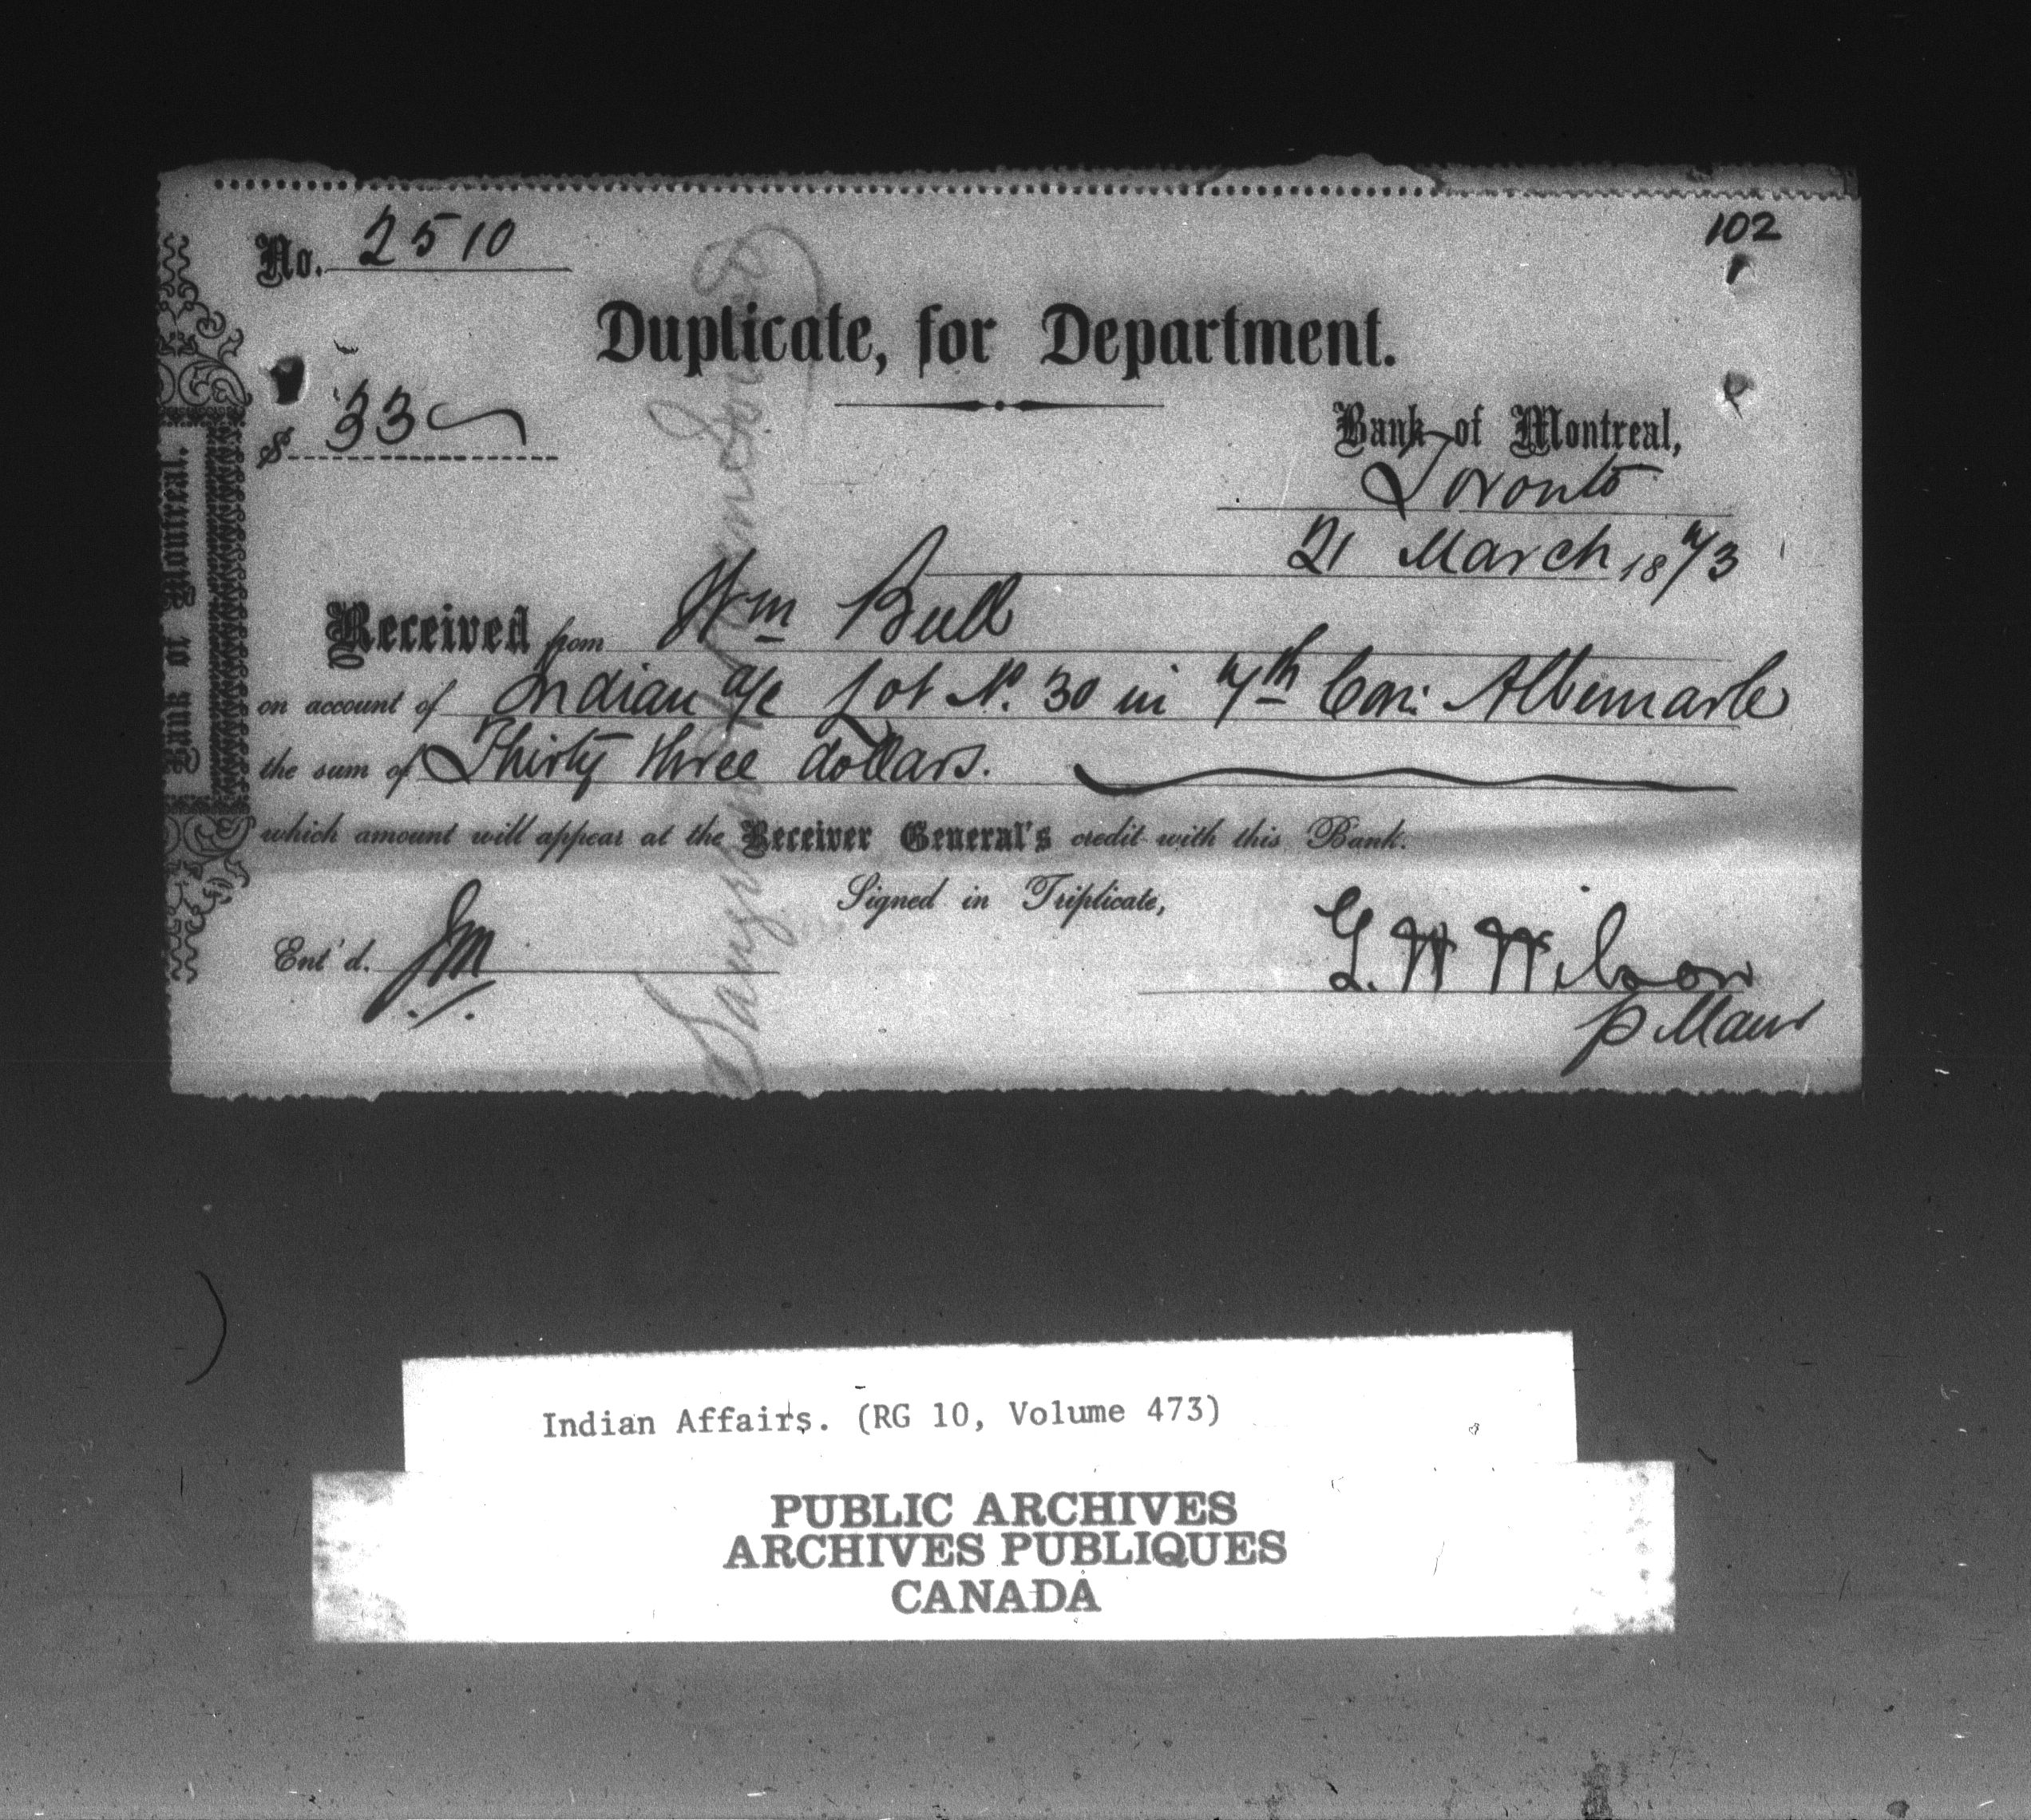 102
No. 2510
Duplicate, for Department.
$ 33
Bank of Montreal,
Toronto
21 March 1873
Received from Wm Bull
on account of Indian a/c Lot No. 30 in 7th Con: Albemarle
the sum of Thirty three dollars.
which amount will appear at the Receiver General's credit with this Bank.
Signed in Triplicate,
Ent'd. JM
G. W Wilson
p Manr
Bank of Montreal.
Indian Affairs. (RG 10, Volume 473)
PUBLIC ARCHIVES
ARCHIVES PUBLIQUES
CANADA